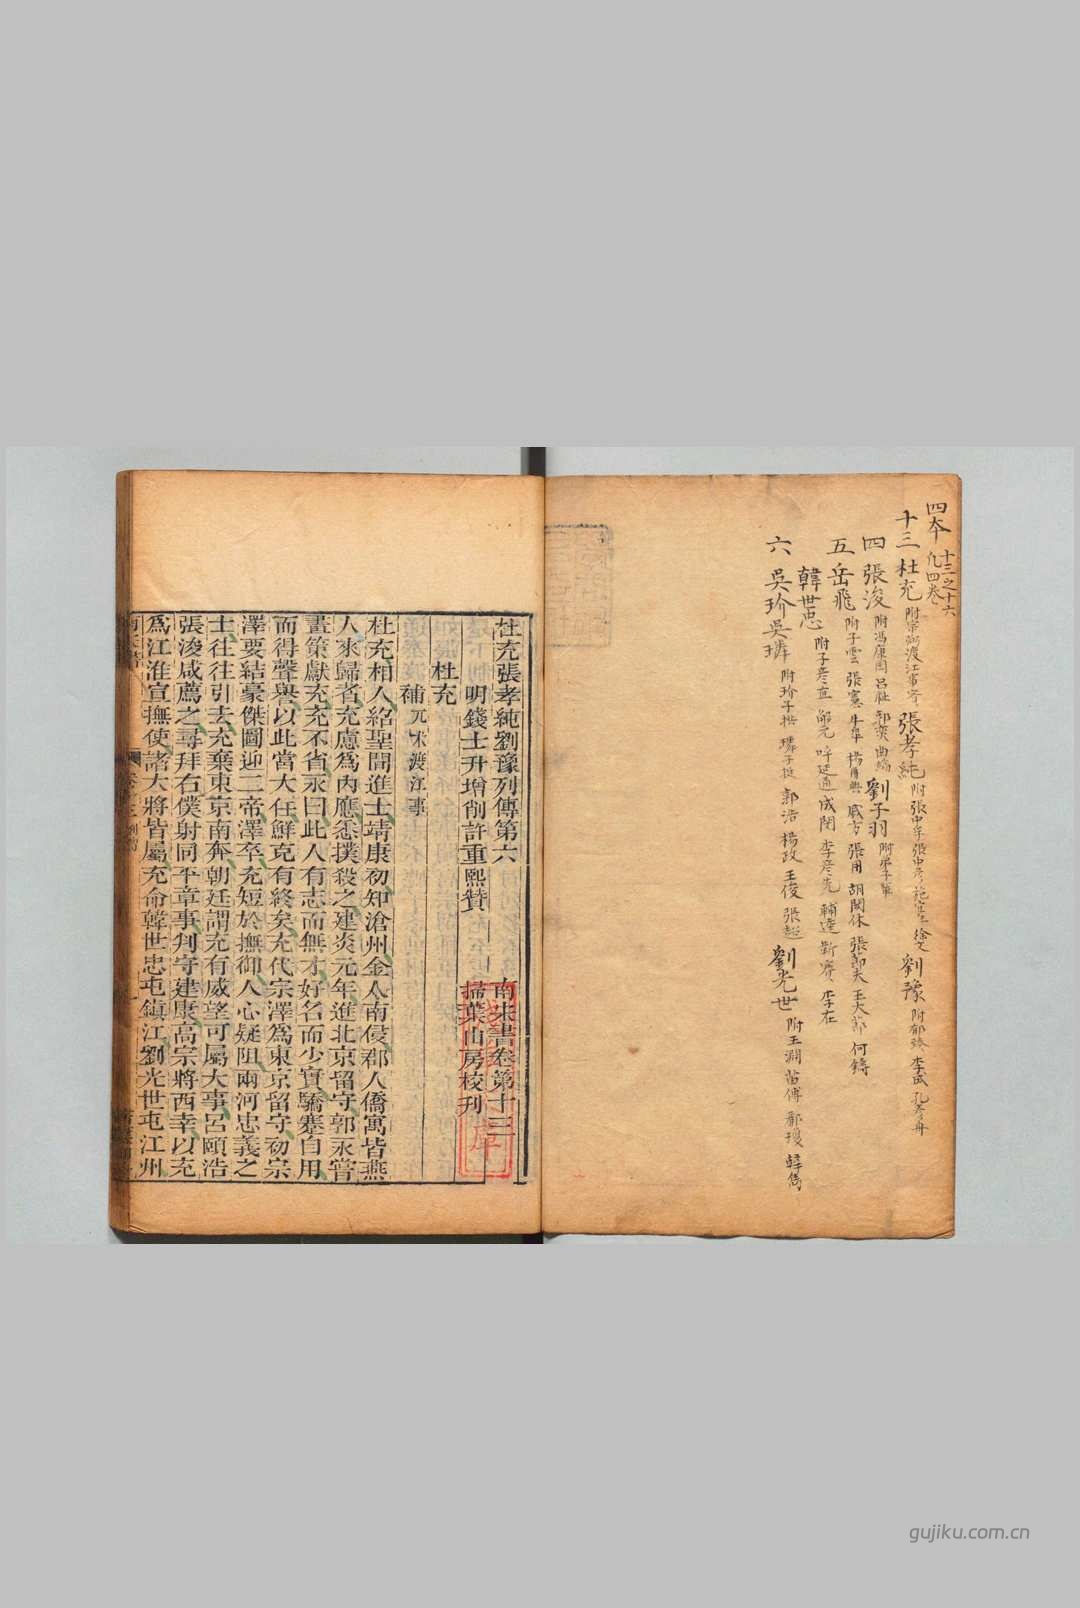 四本 十三之十六 凡四卷
十三 杜充 張孝純 劉豫 附郁臻 李成 孔彥舟
四 張浚 附馮康國 呂祉 劉子羽 附弟子翬
五 岳飛 附子雲 張憲 牛皋 楊再興 張用 胡閎休 張節夫 王大節 何鑄
韓世忠 附子彥直 解元 呼延通 成閔 李彥先 輔逵 靳賽 李在
六 吳玠吳璘 附玠子拱 璘子挺 郭浩 楊政 王俊 張超 劉光世 附王淵 苗傅 酈瓊 韓雋
杜充張孝純劉豫列傳第六 南宋書卷第十三
明錢士升增削許重熙贊 掃葉山房校刊
杜充
補兀朮渡江事
杜充相人紹聖間進士靖康初知滄州金人南侵郡人僑寓皆燕
人來歸者充慮為內應悉撲殺之建炎元年進北京留守郭永嘗
畫策獻充充不省永曰此人有志而無才好名而少實驕蹇自用
而得聲譽以此當大任鮮克有終矣充代宗澤為東京留守初宗
澤要結豪傑圖迎二帝澤卒充短於撫御人心疑阻兩河忠義之
士往往引去充棄東京南奔朝廷謂充有威望可屬大事呂頤浩
張浚咸薦之尋拜右僕射同平章事判守建康高宗將西幸以充
為江淮宣撫使諸大將皆屬充命韓世忠屯鎮江劉光世屯江州
gujiku.com.cn